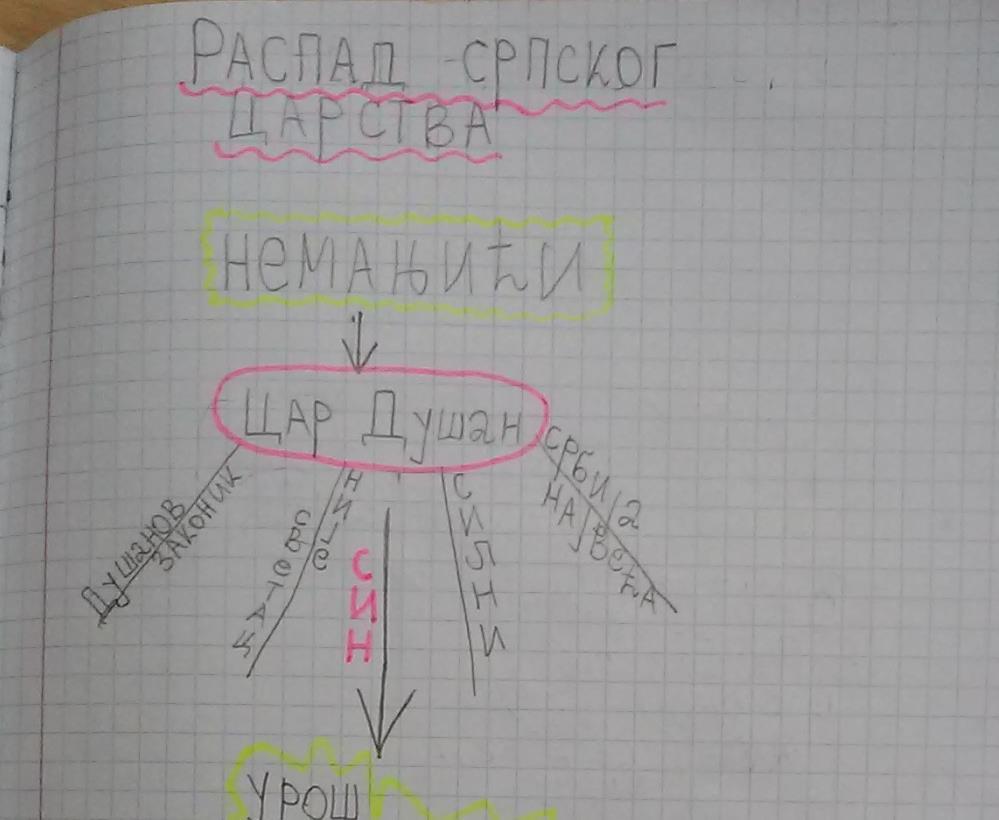 РАСПАД СРПСКОГ
ЦАРСТВА
НЕМАЊИЋИ
ЦАР ДУШАН
ДУШАНОВ
ЗАКОНИК
НИЈЕ
СВЕТАЦ
СИН
СИЛНИ
СРБИЈА
НАЈВЕЋА
УРОШ